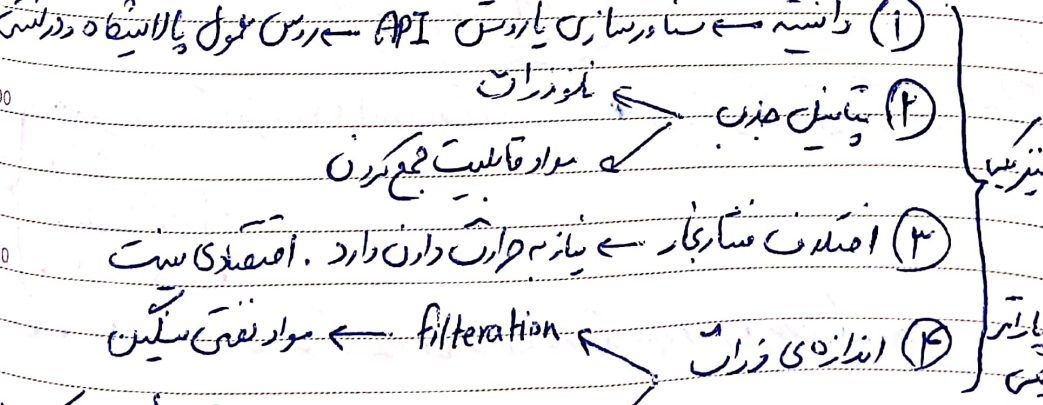 ① دانسیته ← شناورسازی یا روش API ← روش معمول پالایشگاه و در کشتی
② پتانسیل جذب ← نانوذرات
← مواد قابلیت جمع کردن
③ اختلاف فشار بخار ← نیاز به حرارت دادن دارد. اقتصادی نیست
④ اندازه‌ی ذرات ← filteration ← مواد نفتی سنگین
فیزیکی